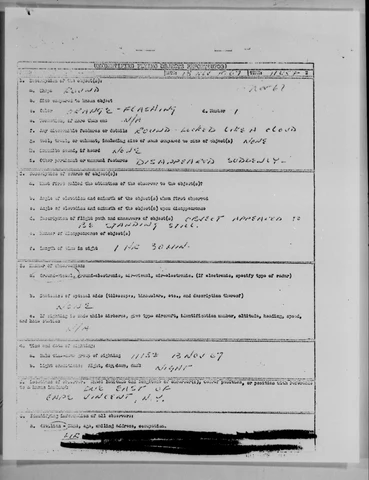 UNIDENTIFIED FLYING OBJECTS REPORT
13 NOV 67
1. Description of the object(s):
a. Shape ROUND
NOV 67
b. Size compared to known object
c. Color ORANGE - FLASHING d. Number 1
e. Formation, if more than one N/A
f. Any discernible features or details ROUND - LOOKED LIKE A CLOUD
g. Tail, trail, or exhaust, including size of same compared to size of object(s) NONE
h. Sound, if heard NONE
i. Other pertinent or unusual features DISAPPEARED SUDDENLY.
2. Description of course of object(s)
a. What first called the attention of the observer to the object(s)?
b. Angle of elevation and azimuth of the object(s) when first observed
c. Angle of elevation and azimuth of object(s) upon disappearance
d. Description of flight path and maneuvers of object(s) OBJECT APPEARED TO
BE STANDING STILL.
e. Manner of disappearance of object(s)
f. Length of time in sight 1 HR 30 MIN.
3. Manner of observation
a. Ground-visual, ground-electronic, air-visual, air-electronic. (If electronic, specify type of radar)
b. Statement of optical aids (telescopes, binoculars, etc., and description thereof)
NONE
c. If sighting is made while airborne, give type aircraft, identification number, altitude, heading, speed,
and home station
N/A
4. Time and date of sighting:
a. Zulu time-date group of sighting 1115Z 13 NOV 67
b. Light conditions: Night, day, dawn, dusk
NIGHT
5. Location of observer.
DUE EAST OF
CAPE VINCENT, N.Y.
6. Identifying information of all observers:
a. Civilian - Name, age, mailing address, occupation.